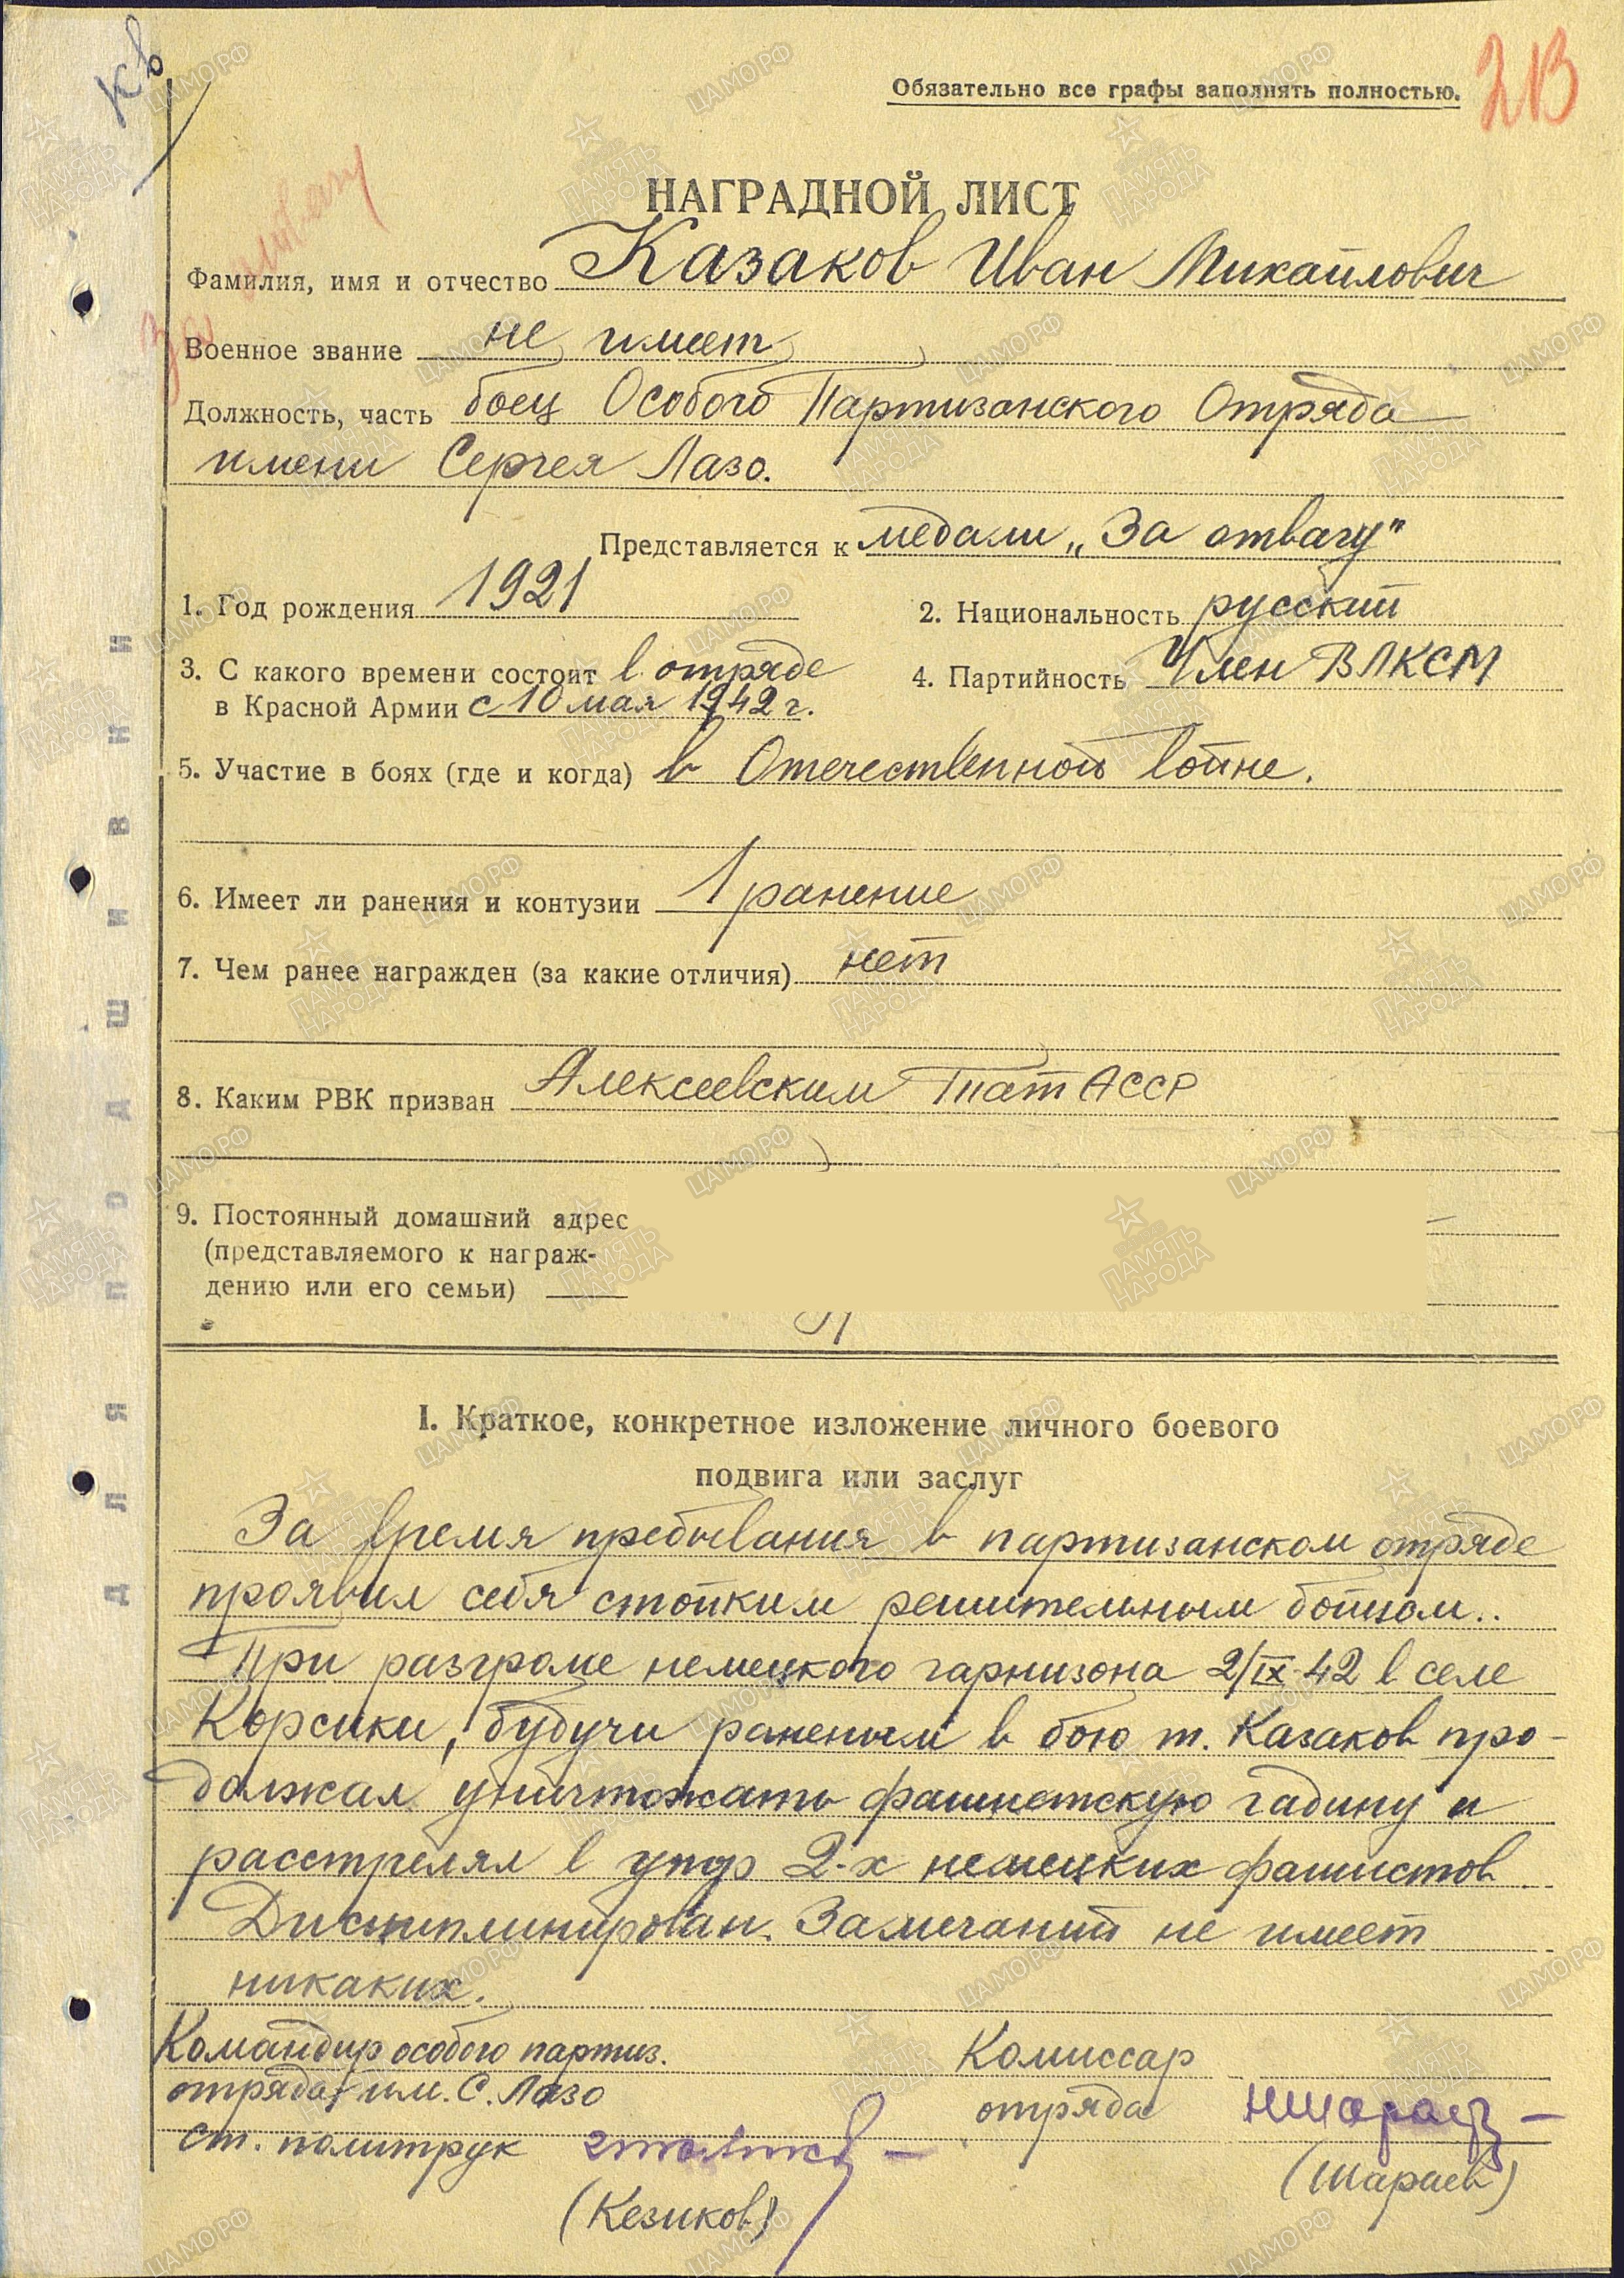 Кв
Обязательно все графы заполнять полностью.
213
За отвагу
НАГРАДНОЙ ЛИСТ
Фамилия, имя и отчество Казаков Иван Михайлович
Военное звание не имеет
Должность, часть боец Особого Партизанского Отряда
имени Сергея Лазо.
Представляется к медали „За отвагу"
1. Год рождения 1921
2. Национальность русский
3. С какого времени состоит в отряде
в Красной Армии с 10 мая 1942 г.
4. Партийность Член ВЛКСМ
5. Участие в боях (где и когда) в Отечественной войне.
6. Имеет ли ранения и контузии 1 ранение
7. Чем ранее награжден (за какие отличия) нет
8. Каким РВК призван Алексеевским ТатАССР
9. Постоянный домашний адрес
(представляемого к награж-
дению или его семьи)
I. Краткое, конкретное изложение личного боевого
подвига или заслуг
За время пребывания в партизанском отряде
проявил себя стойким решительным бойцом..
При разгроме немецкого гарнизона 2/IX-42 в селе
Корсики, будучи раненым в бою т. Казаков про-
должал уничтожать фашистскую гадину и
расстрелял в упор 2-х немецких фашистов
Дисциплинирован. Замечаний не имеет
никаких.
Командир особого партиз.
отряда им. С. Лазо
ст. политрук
(Кезиков)
Комиссар
отряда
(Шараев)
ДЛЯ ПОДШИВКИ
ПАМЯТЬ НАРОДА
ЦАМО.РФ